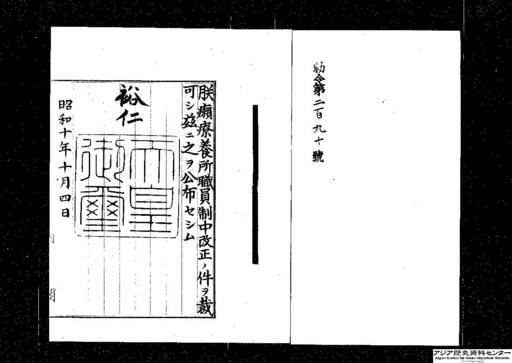 勅令第二百九十號
朕癩療養所職員制中改正ノ件ヲ裁
可シ茲ニ之ヲ公布セシム
裕仁
天皇御璽
昭和十年十月四日
アジア歴史資料センター
Japan Center for Asian Historical Records